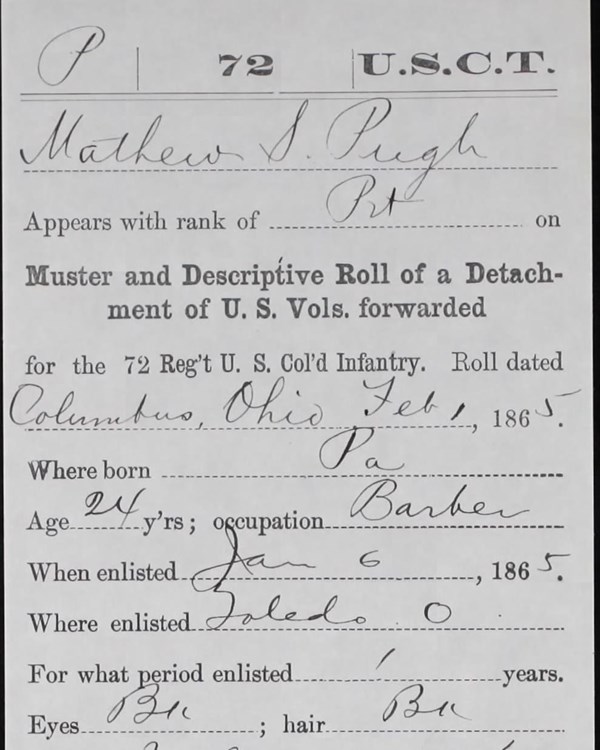 P 72 U.S.C.T.
Mathew S. Pugh
Appears with rank of Pvt on
Muster and Descriptive Roll of a Detach-
ment of U. S. Vols. forwarded
for the 72 Reg't U. S. Col'd Infantry. Roll dated
Columbus, Ohio Feb 1, 1865.
Where born Pa
Age 24 y'rs; occupation Barber
When enlisted Jan 6, 1865.
Where enlisted Toledo O
For what period enlisted 1 years.
Eyes Blk; hair Blk